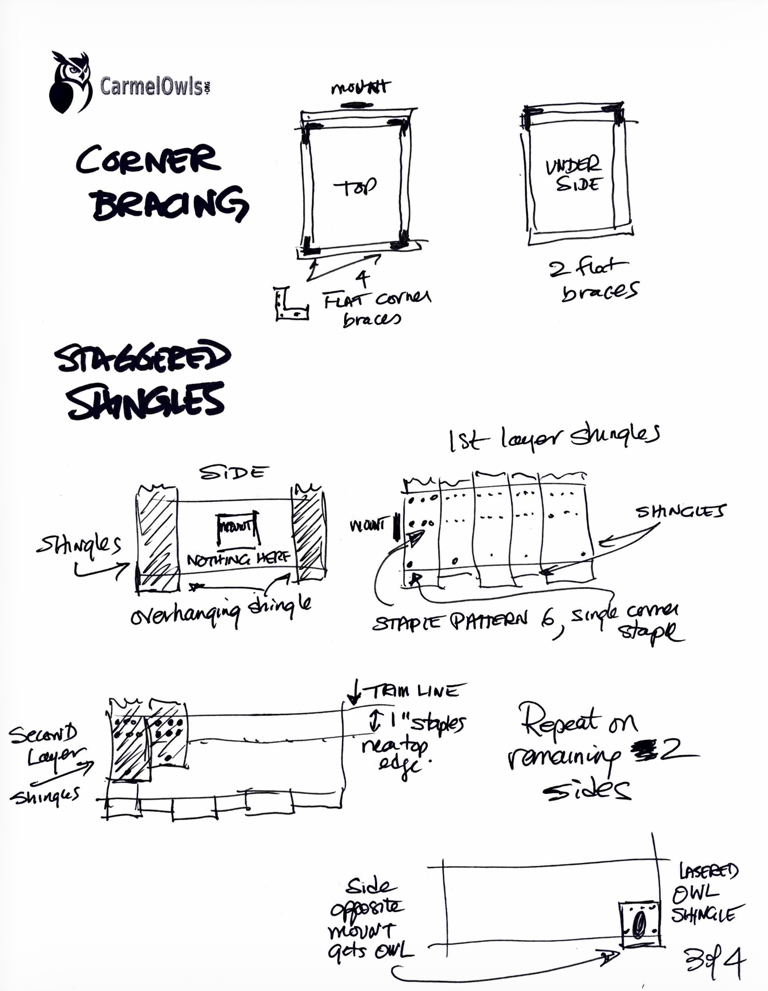 CarmelOwls.ORG
CORNER
BRACING
MOUNT
TOP
4
FLAT corner
braces
UNDER
SIDE
2 flat
braces
STAGGERED
SHINGLES
SIDE
MOUNT
NOTHING HERE
Shingles
overhanging shingle
1st layer shingles
MOUNT
SHINGLES
STAPLE PATTERN 6, single corner
staple
Second
Layer
Shingles
TRIM LINE
1" staples
near top
edge.
Repeat on
remaining 2
sides
Side
opposite
mount
gets OWL
LASERED
OWL
SHINGLE
3 of 4